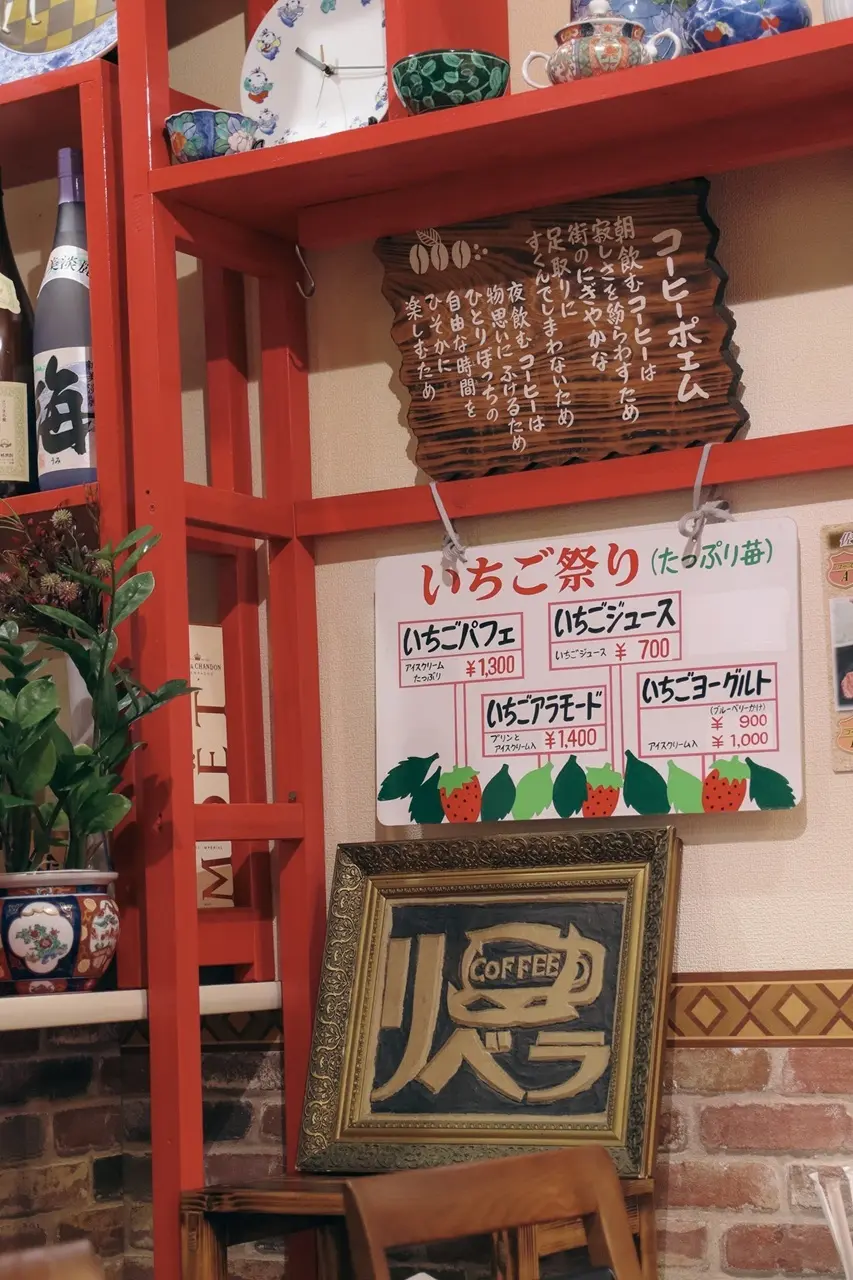 コーヒーポエム
朝飲むコーヒーは
寂しさを紛らわすため
街のにぎやかな
足取りに
すくんでしまわないため
夜飲むコーヒーは
物思いにふけるため
ひとりぼっちの
自由な時間を
ひそかに
楽しむため
いちご祭り(たっぷり苺)
いちごパフェ
アイスクリーム
たっぷり
¥1,300
いちごジュース
いちごジュース ¥700
いちごアラモード
プリンと
アイスクリーム入
¥1,400
いちごヨーグルト
(ブルーベリーかけ)
¥ 900
アイスクリーム入 ¥1,000
COFFEE
リベラ
海
うみ
CHANDON
MOET